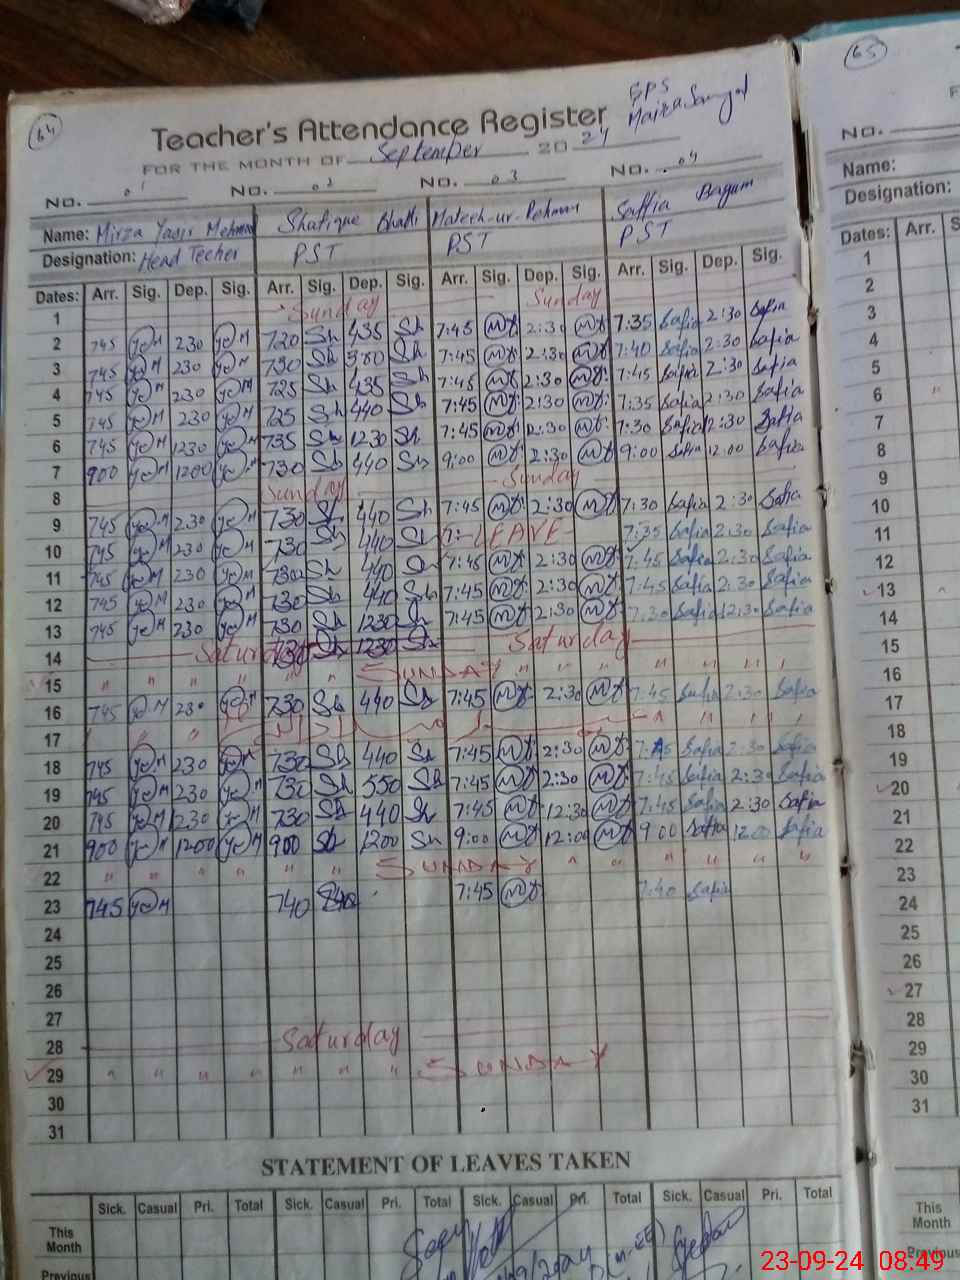 64
65
GPS
Teacher's Attendance Register
FOR THE MONTH OF September 2024
NO. 01 NO. 02 NO. 03 NO. 04
NO.
Name: Mirza Yasir Mehmood Shafique Bhatti Mateeh-ur-Rehman Saffia Begum
Name:
Designation: Head Techer PST PST PST
Designation:
Dates: Arr. Sig. Dep. Sig. Arr. Sig. Dep. Sig. Arr. Sig. Dep. Sig. Arr. Sig. Dep. Sig.
Dates: Arr.
1 Sunday Sunday
2 745 YaM 230 YaM 730 Sh 435 Sh 7:45 2:30 7:35 Safia 2:30 Safia
3 745 YaM 230 YaM 730 Sh Sh 7:45 2:30 7:40 Safia 2:30 Safia
4 745 YaM 230 YaM 725 Sh 435 Sh 7:45 2:30 7:45 Safia 2:30 Safia
5 745 YaM 230 YaM 725 Sh 440 Sh 7:45 2:30 7:35 Safia 2:30 Safia
6 745 YaM 1230 YaM 735 Sh 1230 Sh 7:45 12:30 7:30 Safia 12:30 Safia
7 900 YaM 1200 YaM 730 Sh 440 Sh 9:00 2:30 9:00 Safia 12:00 Safia
8 Sunday Sunday
9 745 YaM 230 YaM 730 Sh 440 Sh 7:45 2:30 7:30 Safia 2:30 Safia
10 745 YaM 230 YaM 730 Sh 440 Sh LEAVE 7:35 Safia 2:30 Safia
11 745 YaM 230 YaM 730 Sh 440 Sh 7:45 2:30 7:45 Safia 2:30 Safia
12 745 YaM 230 YaM 730 Sh 440 Sh 7:45 2:30 7:45 Safia 2:30 Safia
13 745 YaM 230 YaM 730 Sh 1230 Sh 7:45 2:30 7:30 Safia 12:30 Safia
14 Saturday 730 Sh 1230 Sh Saturday
15 " " " " " " SUNDAY " " " " " " "
16 745 YaM 230 YaM 730 Sh 440 Sh 7:45 2:30 7:45 Safia 2:30 Safia
17
18 745 YaM 230 YaM 730 Sh 440 Sh 7:45 2:30 7:45 Safia 2:30 Safia
19 745 YaM 230 YaM 730 Sh 550 Sh 7:45 2:30 7:45 Safia 2:30 Safia
20 745 YaM 1230 YaM 730 Sh 440 Sh 7:45 12:30 7:45 Safia 2:30 Safia
21 900 YaM 1200 YaM 900 Sh 1200 Sh 9:00 12:00 9:00 Safia 12:00 Safia
22 " " " " " " SUNDAY " " " " " "
23 745 YaM 740 7:45 7:40 Safia
24
25
26
27
28 Saturday
29 " " " " " " " SUNDAY
30
31
1
2
3
4
5
6
7
8
9
10
11
12
13
14
15
16
17
18
19
20
21
22
23
24
25
26
27
28
29
30
31
STATEMENT OF LEAVES TAKEN
Sick. Casual Pri. Total Sick. Casual Pri. Total Sick. Casual Pri. Total Sick. Casual Pri. Total
This Month
Previous
This Month
Previous
23-09-24 08:49